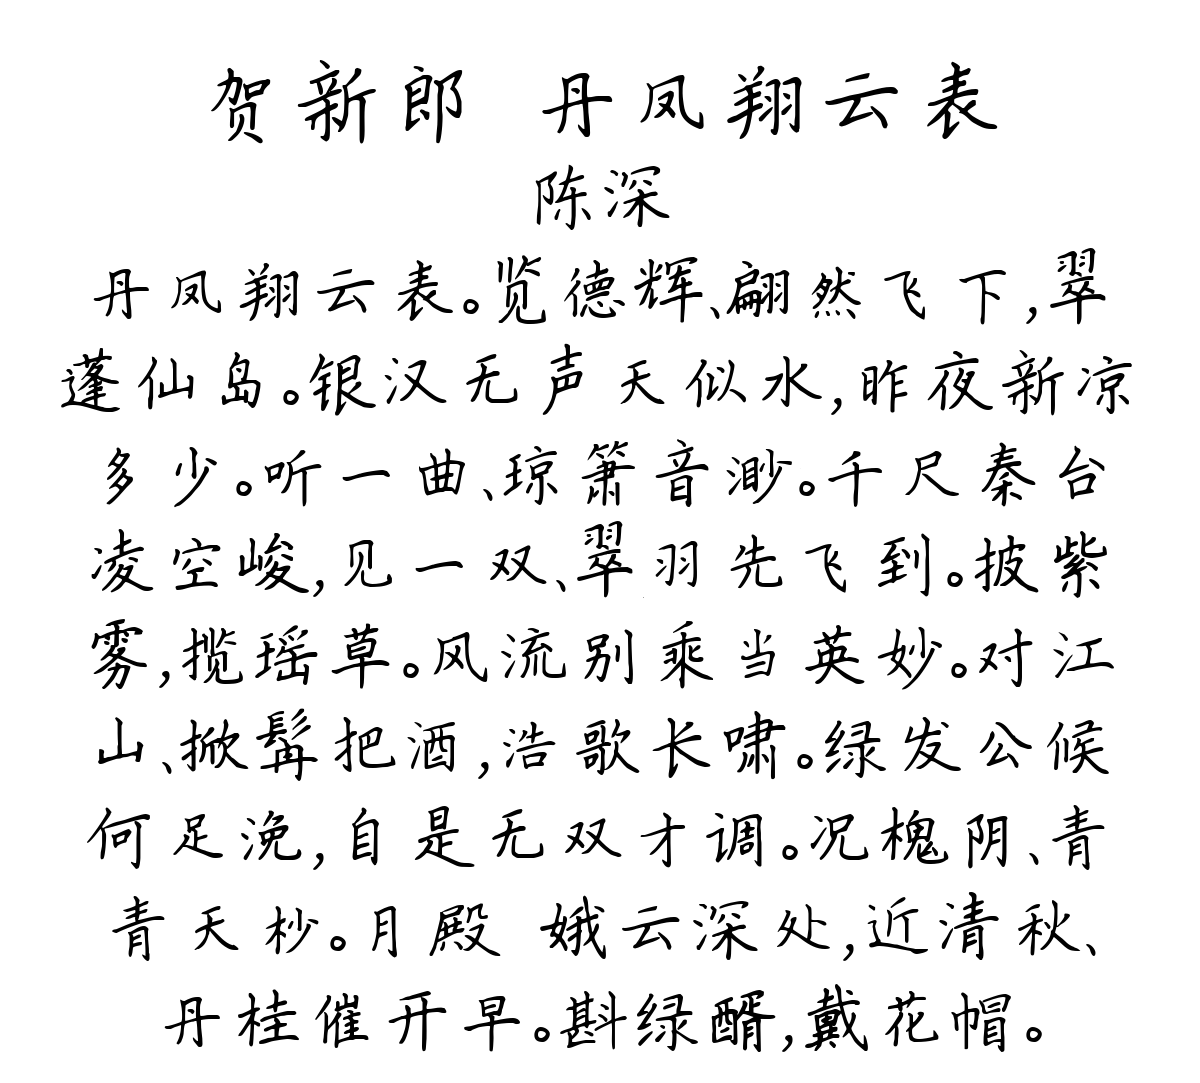 贺新郎 丹凤翔云表
陈深
丹凤翔云表。览德辉、翩然飞下,翠
蓬仙岛。银汉无声天似水,昨夜新凉
多少。听一曲、琼箫音渺。千尺秦台
凌空峻,见一双、翠羽先飞到。披紫
雾,揽瑶草。风流别乘当英妙。对江
山、掀髯把酒,浩歌长啸。绿发公候
何足浼,自是无双才调。况槐阴、青
青天杪。月殿 娥云深处,近清秋、
丹桂催开早。斟绿醑,戴花帽。